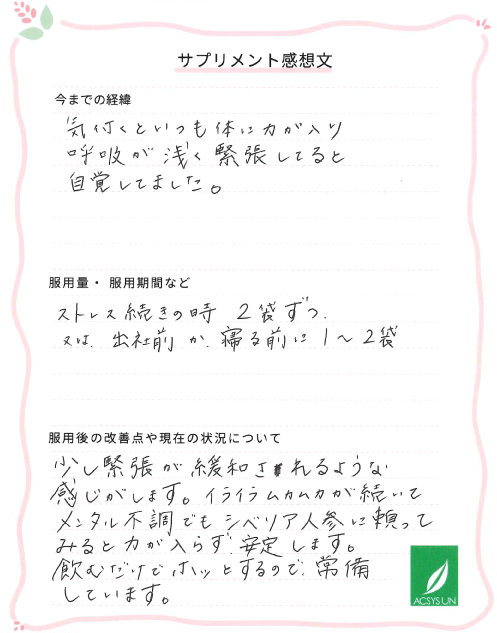 サプリメント感想文
今までの経緯
気付くといつも体に力が入り
呼吸が浅く緊張してると
自覚してました。
服用量・服用期間など
ストレス続きの時 2袋ずつ、
又は、出社前か、寝る前に1〜2袋
服用後の改善点や現在の状況について
少し緊張が緩和されるような
感じがします。イライラムカムカが続いて
メンタル不調でもシベリア人参に頼って
みると力が入らず、安定します。
飲むだけでホッとするので、常備
しています。
ACSYSUN